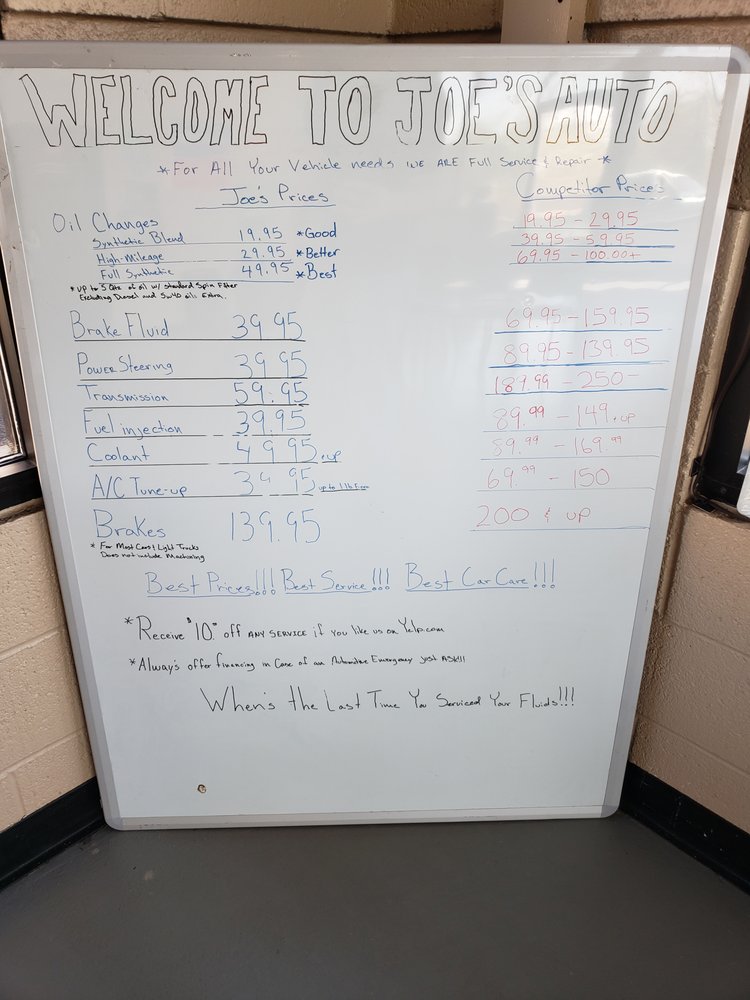 WELCOME TO JOE'S AUTO
*For All Your Vehicle needs WE ARE Full Service & Repair *
Joe's Prices Competitor Prices
Oil Changes
Synthetic Blend 19.95 *Good 19.95 - 29.95
High-Mileage 29.95 *Better 39.95 - 59.95
Full Synthetic 49.95 *Best 69.95 - 100.00+
*up to 5 Qts of oil w/ standard Spin Filter
Excluding Diesel and 5w40 oil. Extra.
Brake Fluid 39.95 69.95 - 159.95
Power Steering 39.95 89.95 - 139.95
Transmission 59.95 189.99 - 250-
Fuel injection 39.95 89.99 - 149.up
Coolant 49.95.up 89.99 - 169.99
A/C Tune-up 34.95 up to 1 lb 69.99 - 150
Brakes 139.95 200 & up
* For Most Cars & Light Trucks
Does not include Machining
Best Prices!!! Best Service!!! Best Car Care!!!
*Receive "10." off ANY SERVICE if you like us on Yelp.com
*Always offer financing in Case of an Automotive Emergency just ASK!!!
When's the Last Time You Serviced Your Fluids!!!